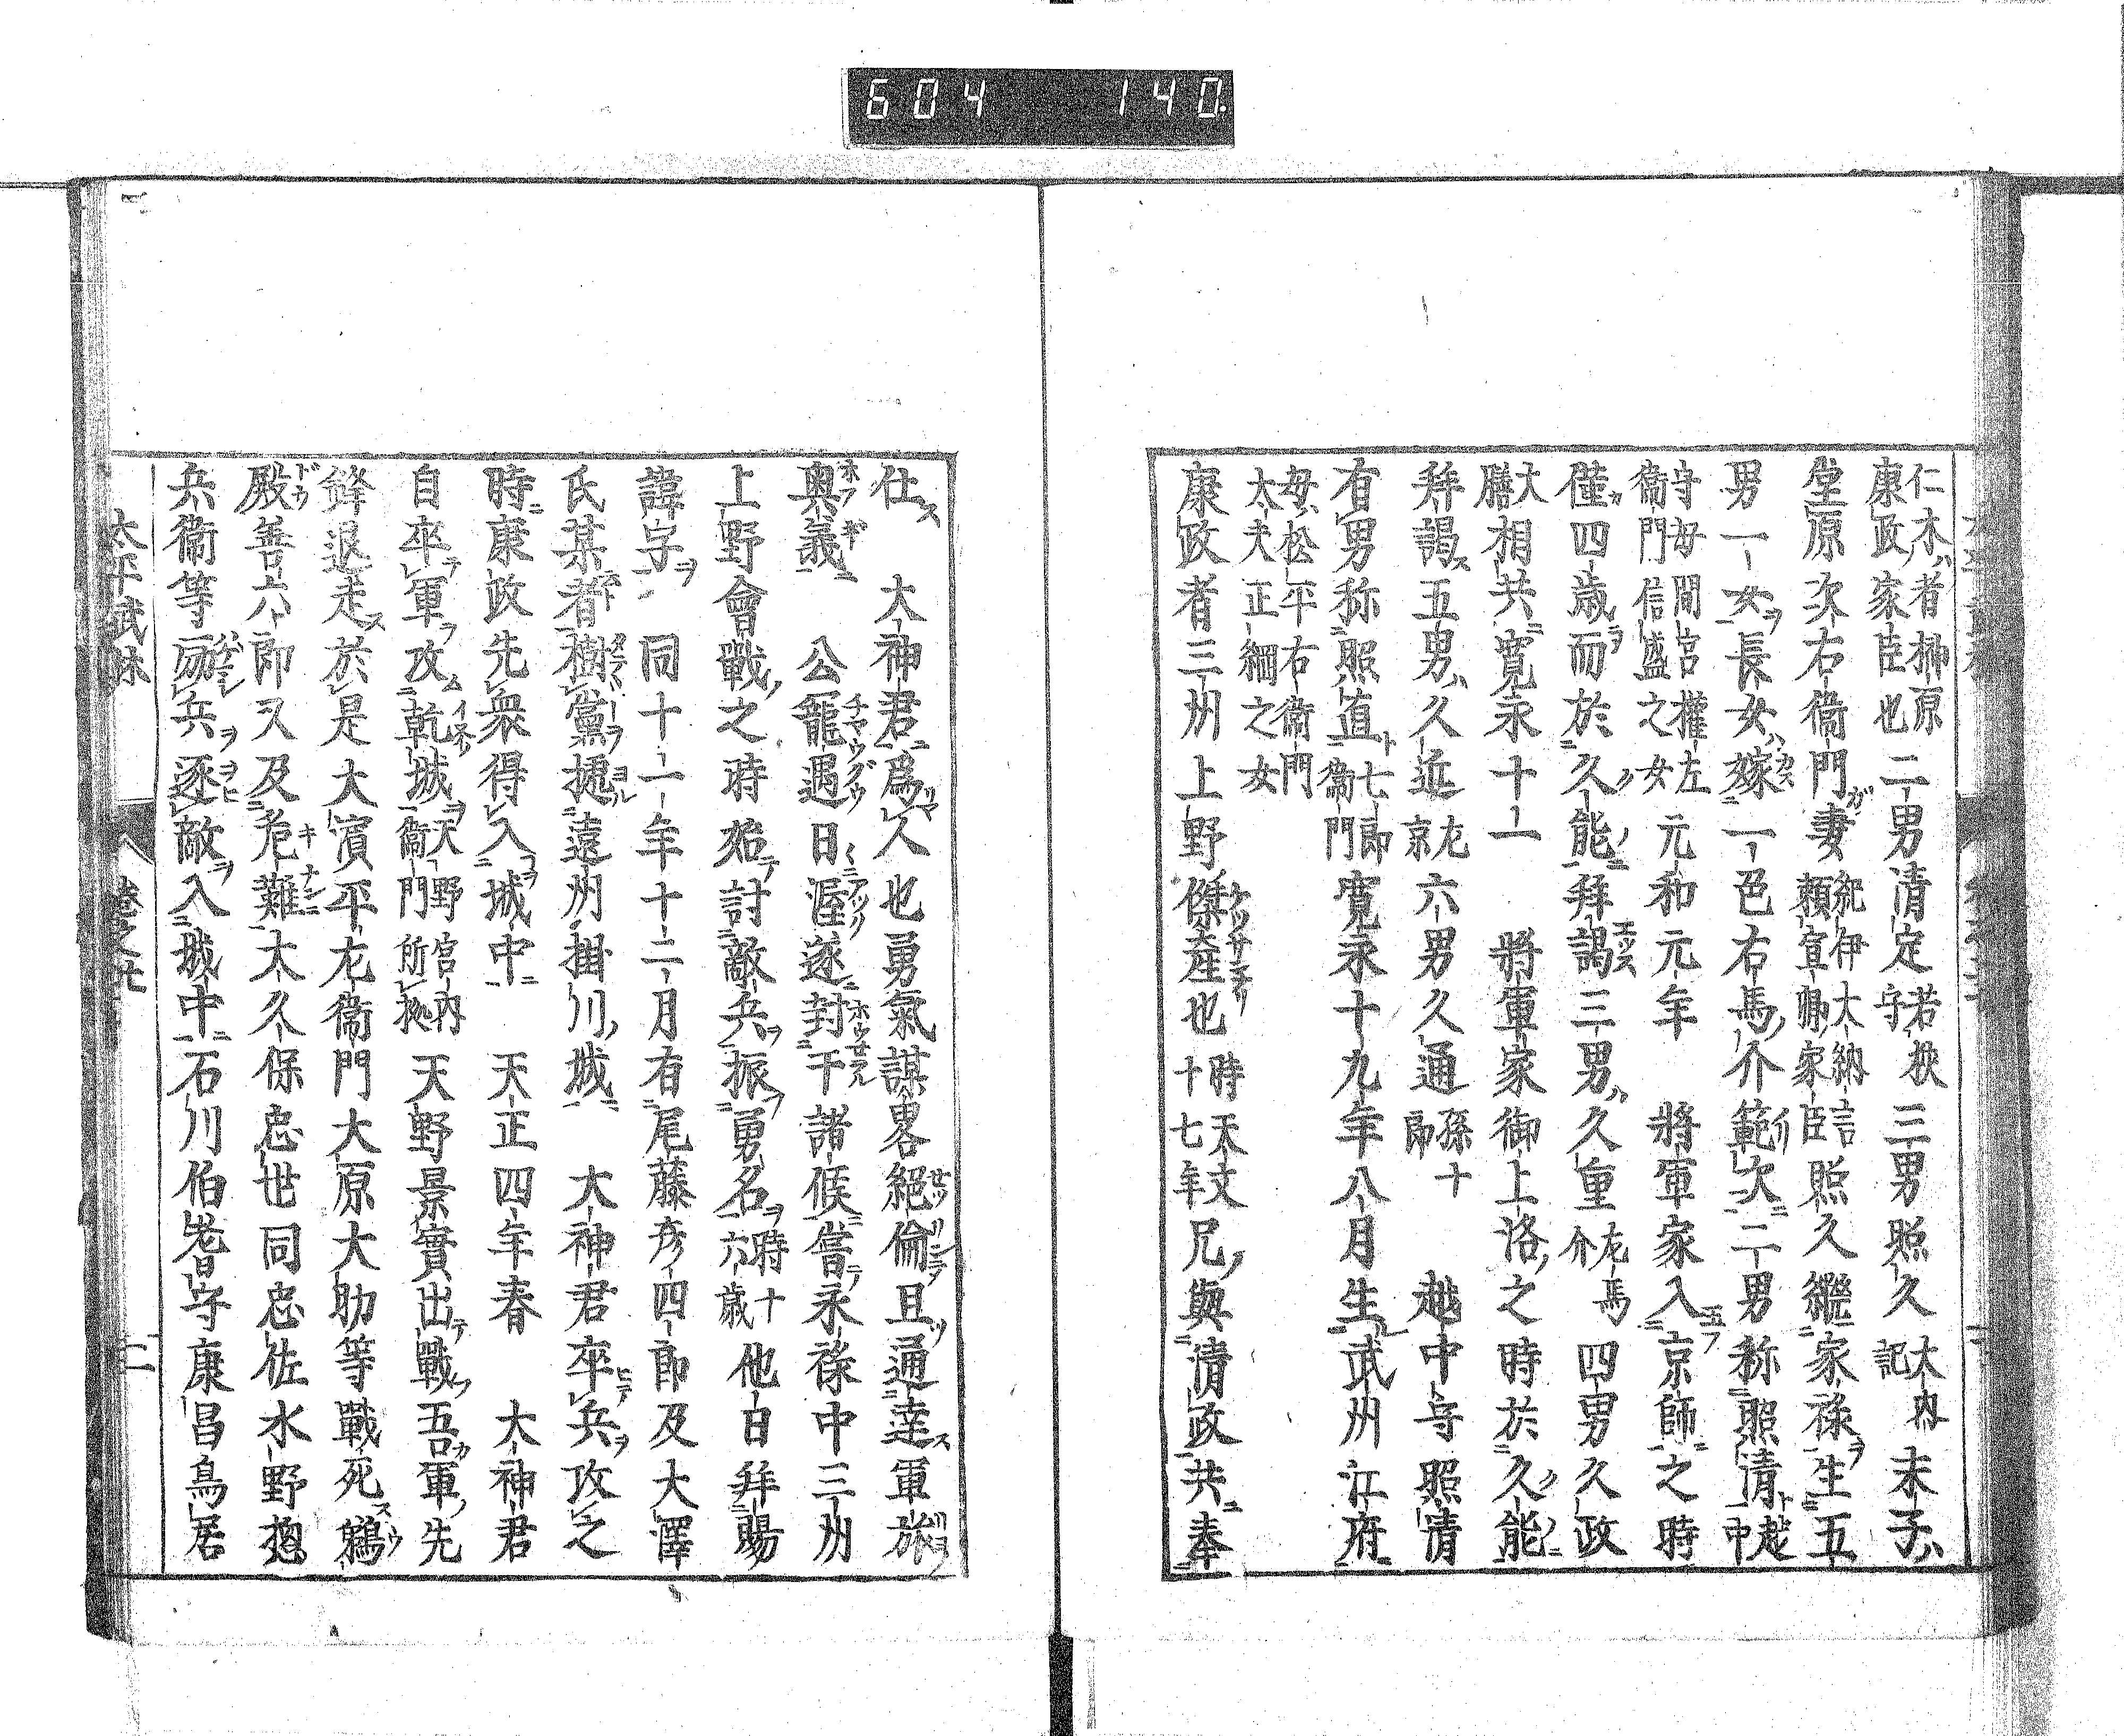 604 140.
仁木者榊原康政家臣也二男清定若狭守三男照久大内記末子
堂原次右衛門妻紀伊大納言頼宣卿家臣照久繼家禄生五
男一女長女嫁一色右馬介範次二男称照清越中
守母間宮權左衛門信盛之女元和元年 將軍家入京師之時
僅四歳而於久能拜謁三男久重左馬介四男久政
大膳相共寛永十一 將軍家御上洛之時於久能
拜謁五男久近左京六男久通孫十郎 越中守照清
有男称照直七郎衛門寛永十九年八月生武州江府
母松平右衛門太夫正綱之女
康政者三州上野傑產也時天文十七年兄與清政共奉
仕 大神君爲人也勇氣謀畧絕倫且通達軍旅
奥義 公寵遇日渥遂封干諸候嘗永禄中三州
上野會戰之時始討敵兵振勇名時十六歳他日拜賜
諱字 同十一年十二月有尾藤彦四郎及大澤
氏某者樹黨據遠州掛川城 大神君卒兵攻之
時康政先衆得入城中 天正四年春 大神君
自卒軍攻乾城天野宮内衛門所拠天野景實出戰吾軍先
鋒退走於是大濱平左衛門大原大助等戰死鵜
殿善六郎又及危難大久保忠世同忠佐水野惣
兵衛等勵兵逐敵入城中石川伯耆守康昌鳥居
太平武林 卷之廿 二